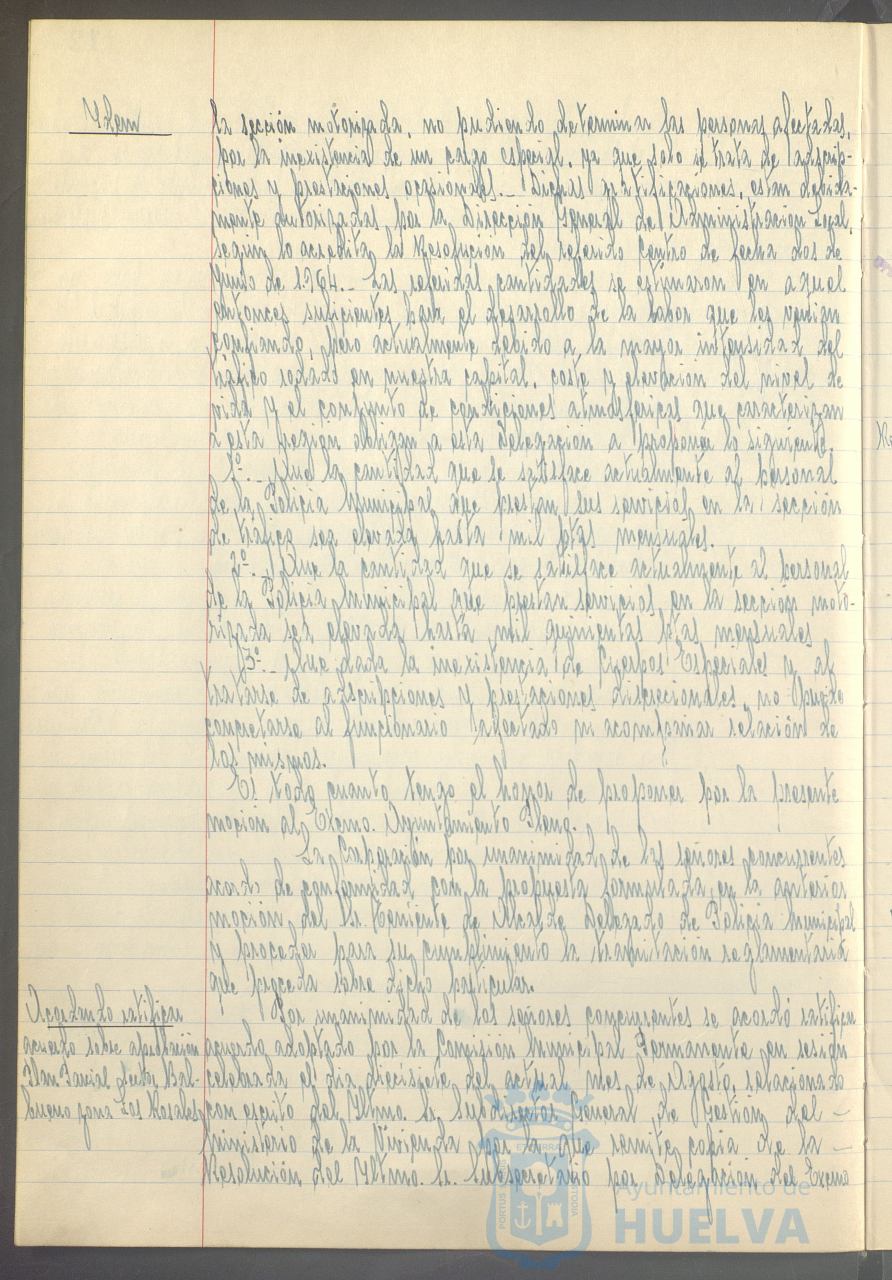 Idem
la sección motorizada, no pudiendo determinar las personas afectadas,
por la inexistencia de un cargo especial, ya que solo se trata de adscrip-
ciones y prestaciones ocasionales.- Dichas gratificaciones, están debida-
mente autorizadas por la Dirección General de Administración Local,
según lo acredita la Resolución del referido Centro de fecha dos de
Junio de 1.964.- Las referidas cantidades se estimaron en aquel
entonces suficientes para el desarrollo de la labor que les venían
confiando, pero actualmente debido a la mayor intensidad del
tráfico rodado en nuestra capital, coste y elevación del nivel de
vida y el conjunto de condiciones atmosféricas que caracterizan
a esta región obligan a esta Delegación a proponer lo siguiente.
1º.- Que la cantidad que se satisface actualmente al personal
de la Policía Municipal que prestan sus servicios en la sección
de tráfico sea elevada hasta mil ptas mensuales.
2º.- Que la cantidad que se satisface actualmente al personal
de la Policía Municipal que prestan servicios en la sección moto-
rizada sea elevada hasta mil quinientas ptas mensuales
3º.- Que dada la inexistencia de Cuerpos Especiales y al
tratarse de adscripciones y prestaciones discrecionales, no puede
concretarse al funcionario afectado ni acompañar relación de
los mismos.
Es todo cuanto tengo el honor de proponer por la presente
moción al Excmo. Ayuntamiento Pleno.
La Corporación por unanimidad de los señores concurrentes
acordó de conformidad con la propuesta formulada en la anterior
moción del Sr. Teniente de Alcalde Delegado de Policía Municipal
y proceder para su cumplimiento la tramitación reglamentaria
que proceda sobre dicho particular.
Acordando ratificar
acuerdo sobre aprobación
Plan Parcial Sector Bal-
bueno zona Los Rosales
Por unanimidad de los señores concurrentes se acordó ratificar
acuerdo adoptado por la Comisión Municipal Permanente en sesión
celebrada el día diecisiete del actual mes de Agosto, relacionado
con escrito del Iltmo. Sr. Subdirector General de Gestión del -
Ministerio de la Vivienda por la que remite copia de la -
Resolución del Iltmo. Sr. Subsecretario por delegación del Excmo
PORTUS
TERRA
CUSTODIA
Ayuntamiento de
HUELVA